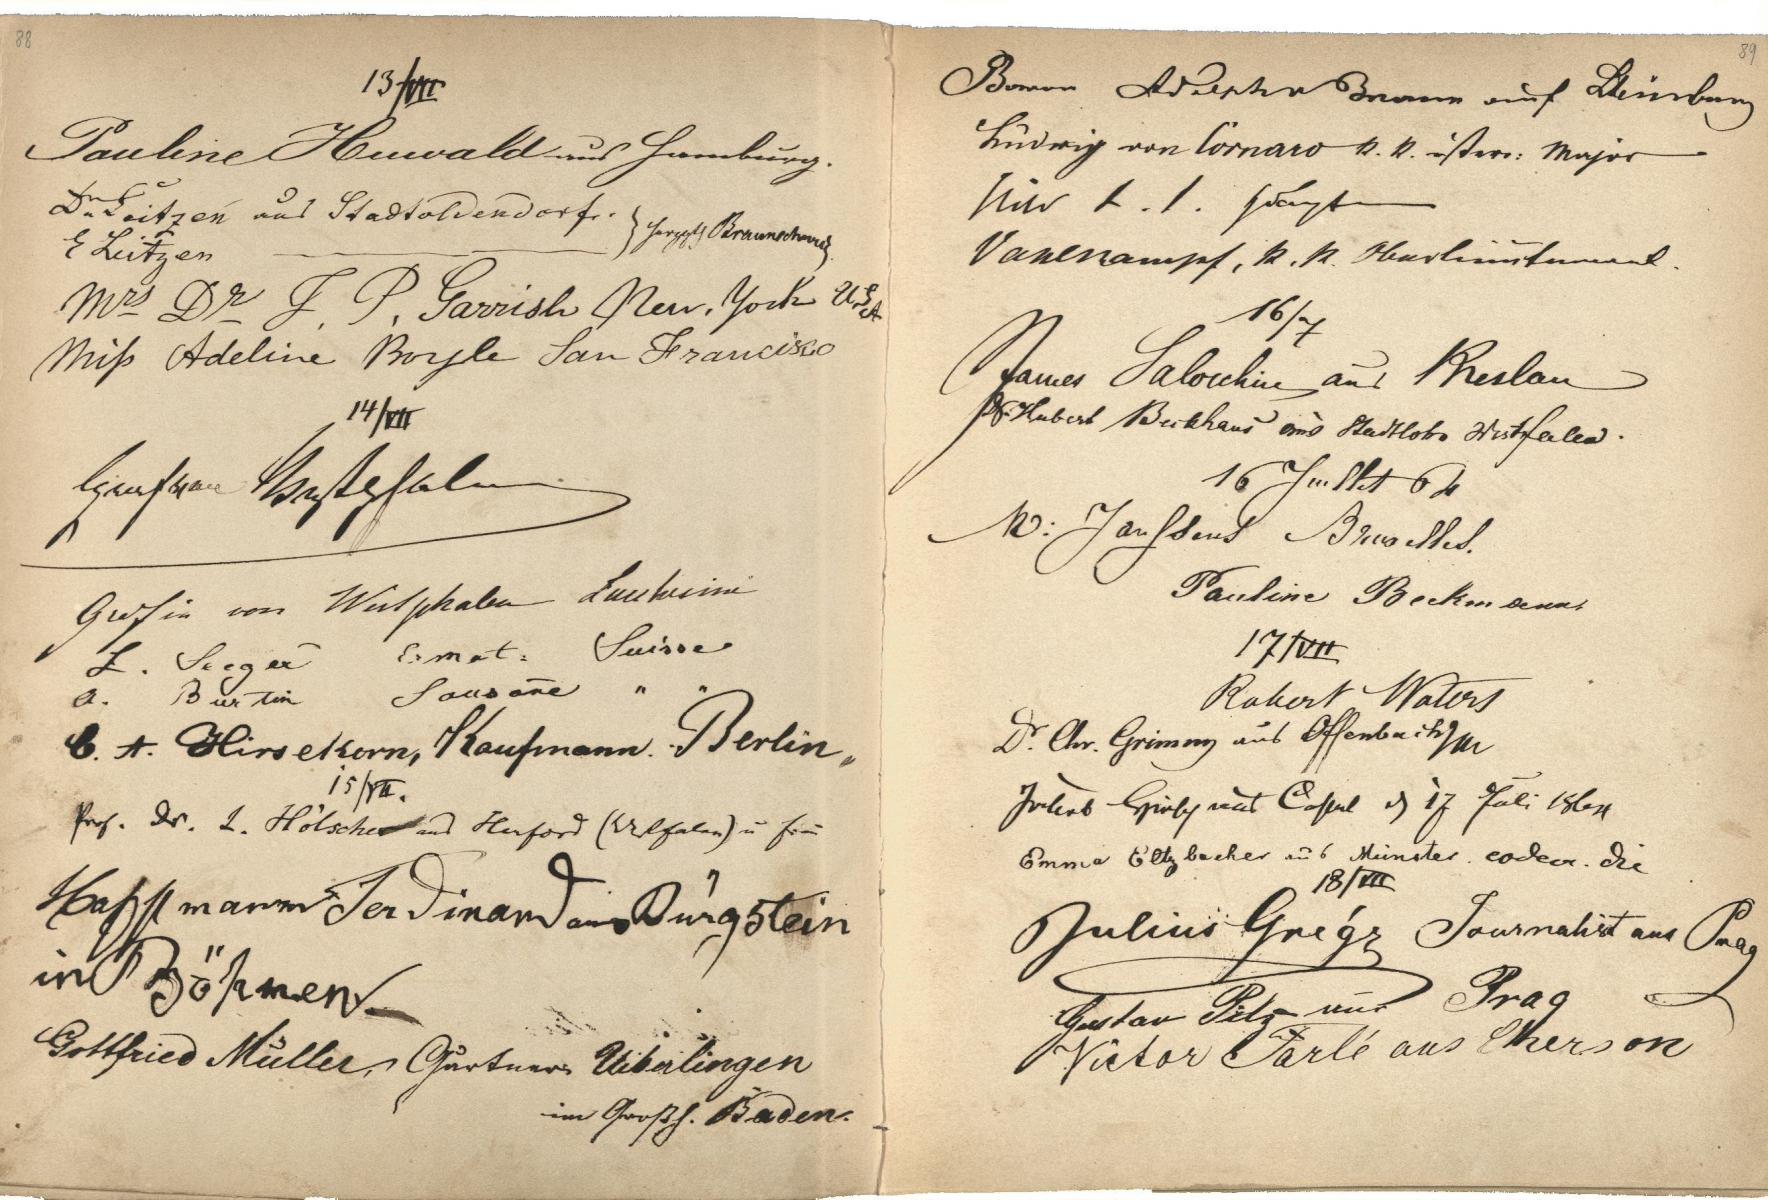 88
13/VII
Pauline Heuwald aus Hamburg.
Dr. Leitzen aus Stadtoldendorf.
E Leitzen Braunschweig
Mrs Dr J. P. Garrish New. York U.S.A
Miss Adeline Boyle San Francisko
14/VII
Graf von Westphalen
Gräfin von Westphalen
L. Seeger Ermat: Suisse
A. Burtin Lausane " "
C. A. Hirsekorn, Kaufmann. Berlin
15/VII.
Prof. Dr. L. Hölscher aus Herford (Westfalen) u Frau
Ferdinand aus Bürgstein
in Böhmen
Gottfried Müller, Gärtner Uiberlingen
im Großh. Baden.
89
Baron Adolph Braun auf
Ludwig von Cornaro k. k. österr: Major
k. k.
16/7
James Saloschin aus Breslau
Dr Hubert Beckhaus aus Stadtlohn Westfalen.
16 Juillet 64
Janssens Bruxelles.
Pauline Beckmann
17/VII
Robert Waters
Dr. Chr. Grimm aus Offenbach a/M
Jakob aus Cassel d 17 Juli 1864
Emma Eltzbacher aus Münster. eodem. die
18/VII
Julius Grégr Journalist aus Prag
Gustav Pilz aus Prag
Victor Tarlé aus Cherson